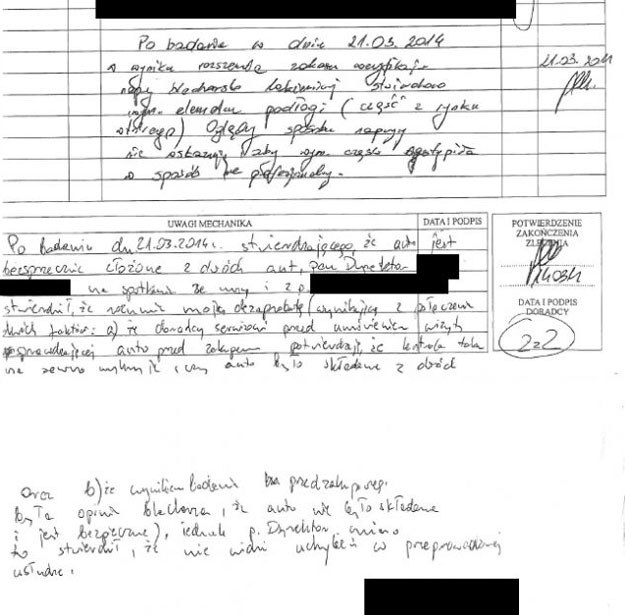 Po badaniu w dniu 21.03.2014
w wyniku rozszerzenia zakresu weryfikacji
blacharsko lakierniczej stwierdzono
elementu podłogi (część z
Oględziny sposobu naprawy
nie wskazują żeby wym. część
w sposób nie profesjonalny.
21.03.2014
UWAGI MECHANIKA
DATA I PODPIS
Po badaniu dn 21.03.2014r. stwierdzającego, że auto jest
bezsprzecznie złożone z dwóch aut, Pan Dyrektor
na spotkaniu ze mną i z p.
stwierdził, że rozumie moją dezaprobatę (wynikającą z połączenia
dwóch faktów: a) że doradcy serwisowi przed umówieniem wizyty
sprawdzającej auto przed zakupem potwierdzają, że kontrola taka
na pewno wykryje czy auto było składane z dwóch
POTWIERDZENIE
ZAKOŃCZENIA
ZLECENIA
DATA I PODPIS
DORADCY
2z2
oraz b) że wynikiem badania przedzakupowego
była opinia blacharza, że auto nie było składane
i jest bezpieczne), jednak p. Dyrektor mimo
to stwierdził, że nie widzi uchybień w przeprowadzonej
usłudze.